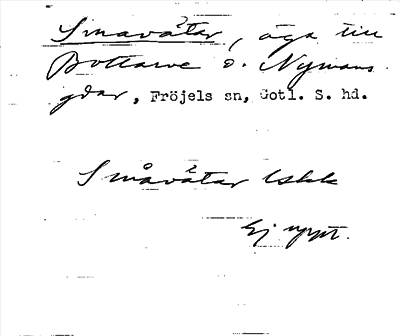 Smavätar, äga till
Bottarve o. Nymans
gdar, Fröjels sn, Gotl. S. hd.
Småvätar Ebkk
Ej uppt.